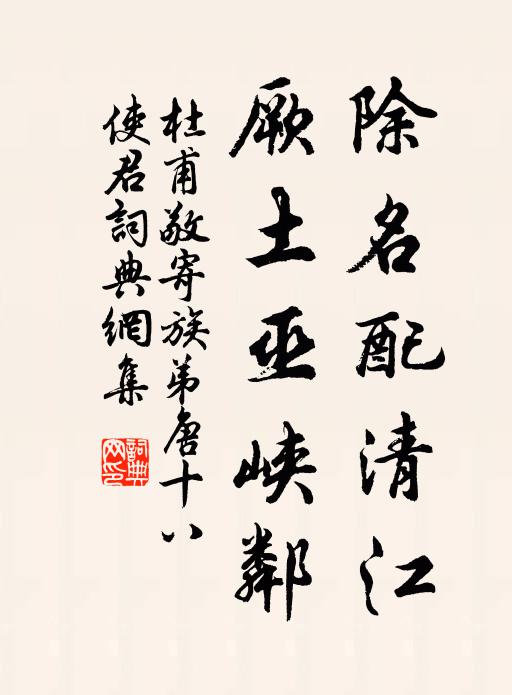 除名配清江
厥土巫峽鄰
杜甫敬寄族弟唐十八
使君詞典網集
詞典
网印